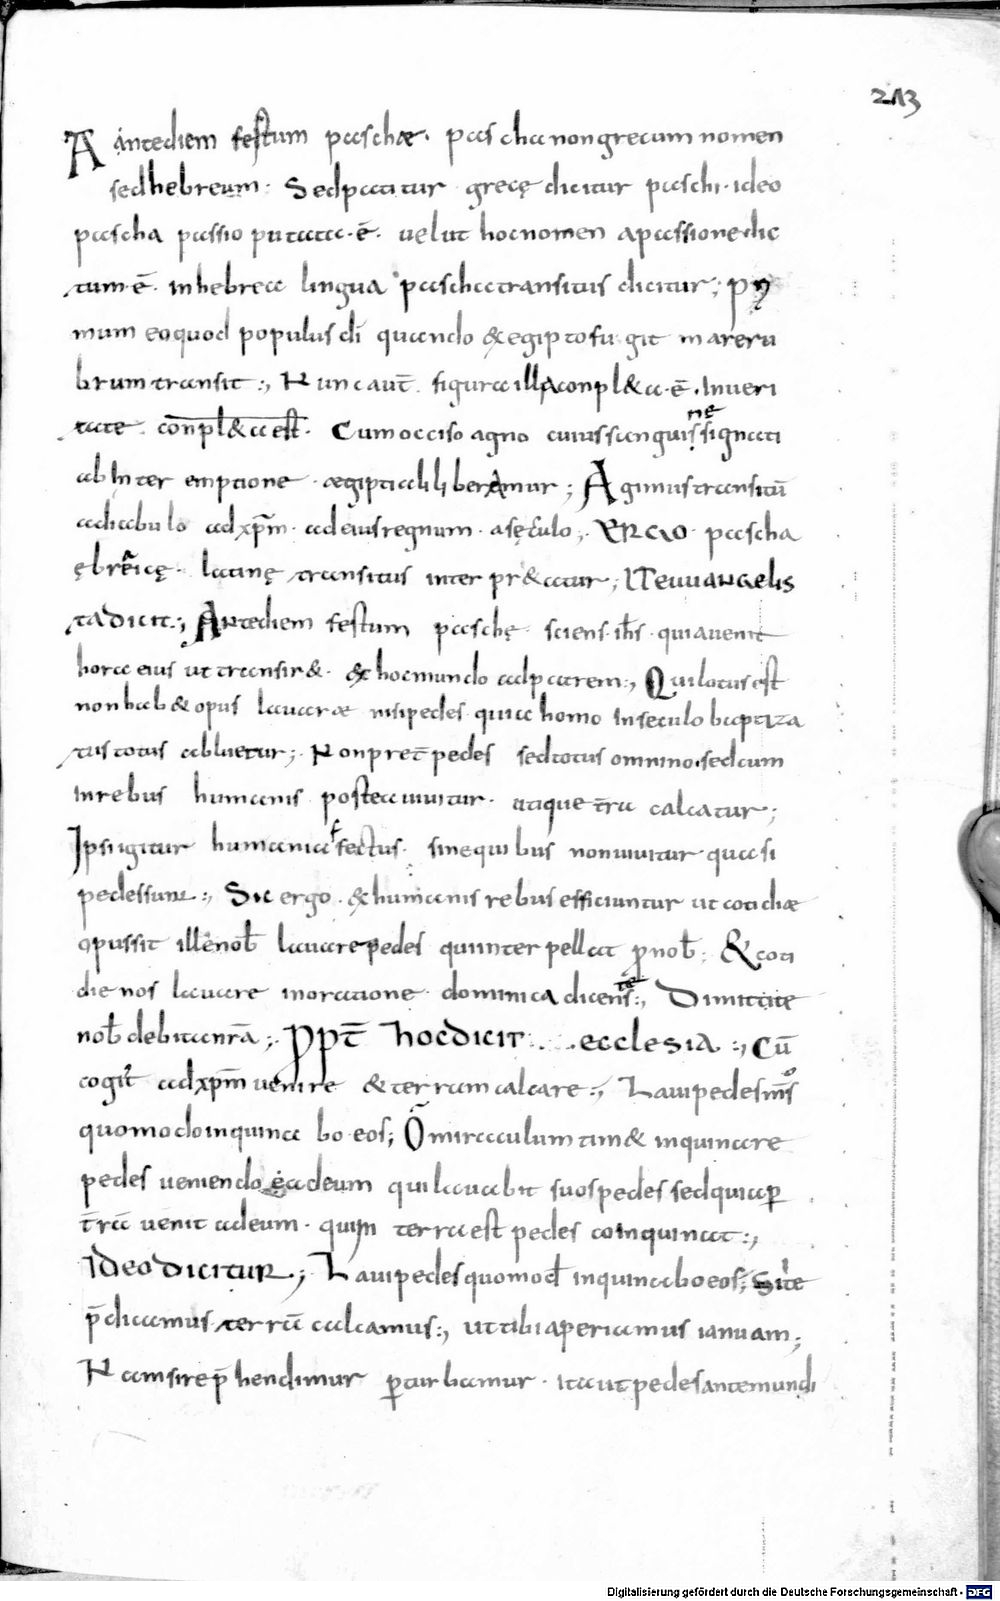 213
A antediem festum paschæ. pascha nongrecum nomen
sedhebreum: Sedpatitur grecę dicitur paschi. ideo
pascha passio putata. ē. uęlut hocnomen apassione. dic
tum. ē. inhebrea lingua paschatransitus dicitur; Pri
mum eoquod populus di quando &egipto fugit mareru
brum transit:, Nunc aut figura illa conpl&a. ē. Inueri
tate. conpl&a est. Cumocciso agno cuiussanguis nę signati
ab Inter emptione ægiptiaca liberamur; Agimus transitū
adiabulo adxp̄m. adeiusregnum. asęculo;. ERGO. pascha
ębreicę. latinę transitus inter pr&atur; ITeuuangelis
tadicit:, Antediem festum paschę. sciens. ih̄s. quiauenit
hora eius ut transir&. &x hocmundo adpatrem:, Qui lotus est
nonhab& opus lauaræ nisipedes. quia homo Inseculo baptiza
tus totus abluetur;. Nonpret̄ pedes sedtotus omnino. sedcum
inrebus humanis postea uiuitur. utique t̄ra calcatur;
Ipsi igitur humani affectus. sinequibus nonuiuitur quasi
pedessunt:, Sic ergo. &humanis rebus efficiuntur ut cotidiæ
opussit ille nob̄ lauarepedes quiinter pellat pronob̄; &coti
die nos lauare inoratione dominica dicente:, Dimittite
nob̄ debitanr̄a;. Propt̄ hocdicit ecclesia:, Cū
cogit̄ adxp̄m uenire &terram calcare:, Lauipedesm̄os
quomodoinquina bo. eos; O miraculum tim& inquinare
pedes ueniendo adeum quilauabit suospedes sedquiaper
t̄ra uenit adeum. quiin terra est pedes coinquinat:,
Ideo dicitur; Lauipedes quomod̄ inquinaboeos; Si te
p̄dicamus terrā calcamus:, uttibiaperiamus ianuam;
Namsirep̄hendimur perturbamur. itaut pedesantemundi
Digitalisierung gefördert durch die Deutsche Forschungsgemeinschaft - DFG